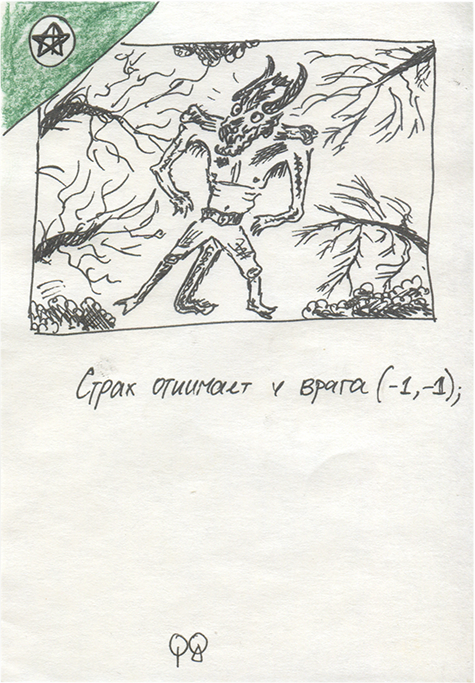 Страх отнимает у врага (-1,-1);